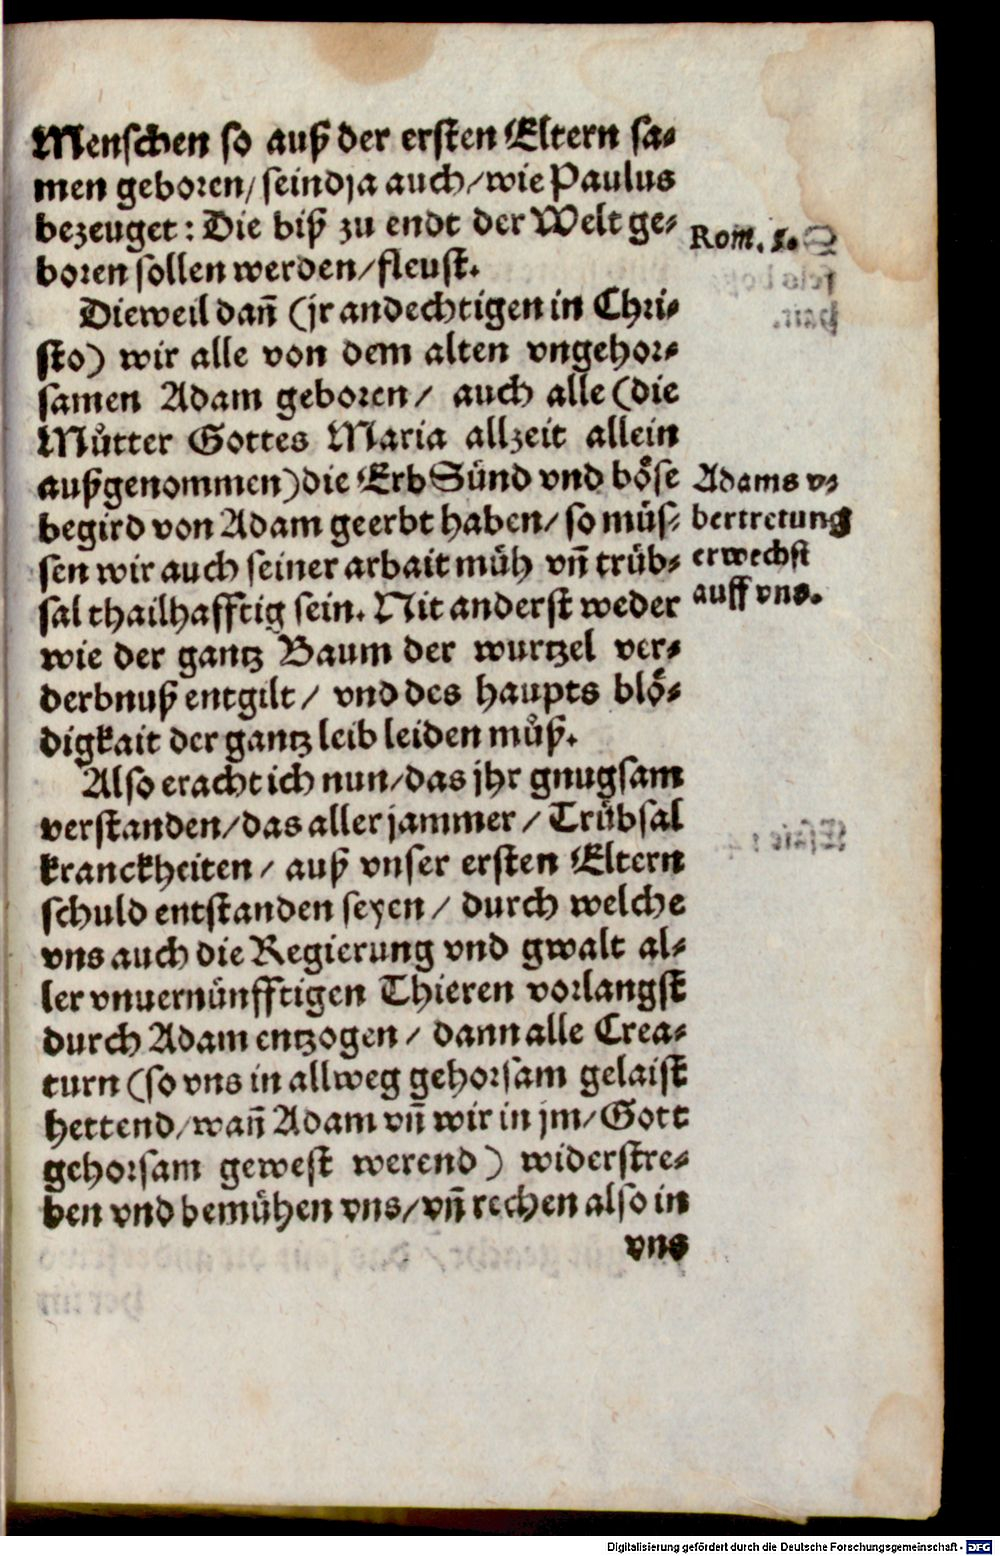 Menschen so auß der ersten Eltern sa⸗
men geboren/ seind ja auch/ wie Paulus
bezeuget: Die biß zu endt der Welt ge⸗
boren sollen werden/ fleust.
Rom. 5.
Dieweil dañ (jr andechtigen in Chri⸗
sto) wir alle von dem alten vngehor⸗
samen Adam geboren/ auch alle (die
Můtter Gottes Maria allzeit allein
außgenommen) die Erb Sünd vnd böse
begird von Adam geerbt haben/ so müs⸗
sen wir auch seiner arbait müh vñ trüb⸗
sal thailhafftig sein. Nit anderst weder
wie der gantz Baum der wurtzel ver⸗
derbnuß entgilt/ vnd des haupts blö⸗
digkait der gantz leib leiden můß.
Adams v⸗
bertretung
erwechst
auff vns.
Also eracht ich nun/ das jhr gnugsam
verstanden/ das aller jammer/ Trübsal
kranckheiten/ auß vnser ersten Eltern
schuld entstanden seyen/ durch welche
vns auch die Regierung vnd gwalt al⸗
ler vnuernünfftigen Thieren vorlangst
durch Adam entzogen/ dann alle Crea⸗
turn (so vns in allweg gehorsam gelaist
hettend/ wañ Adam vñ wir in jm/ Gott
gehorsam gewest werend) widerstre⸗
ben vnd bemühen vns/ vñ rechen also in
vns
Digitalisierung gefördert durch die Deutsche Forschungsgemeinschaft - DFG